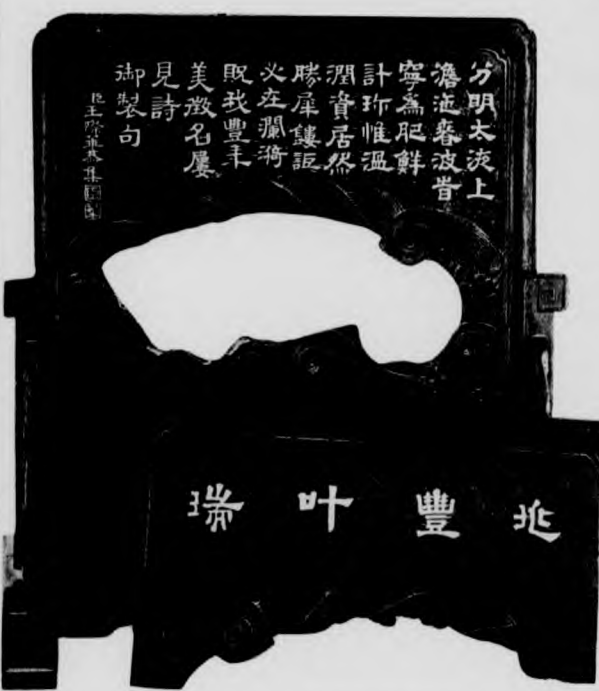 分明太液上
澹沲春波旹
寧為肥鮮
計珎惟溫
潤資居然
勝犀鏤詎
必在瀾漪
貺我豐年
美徵名屢
見詩
御製句
臣王際華恭集
兆豐叶瑞